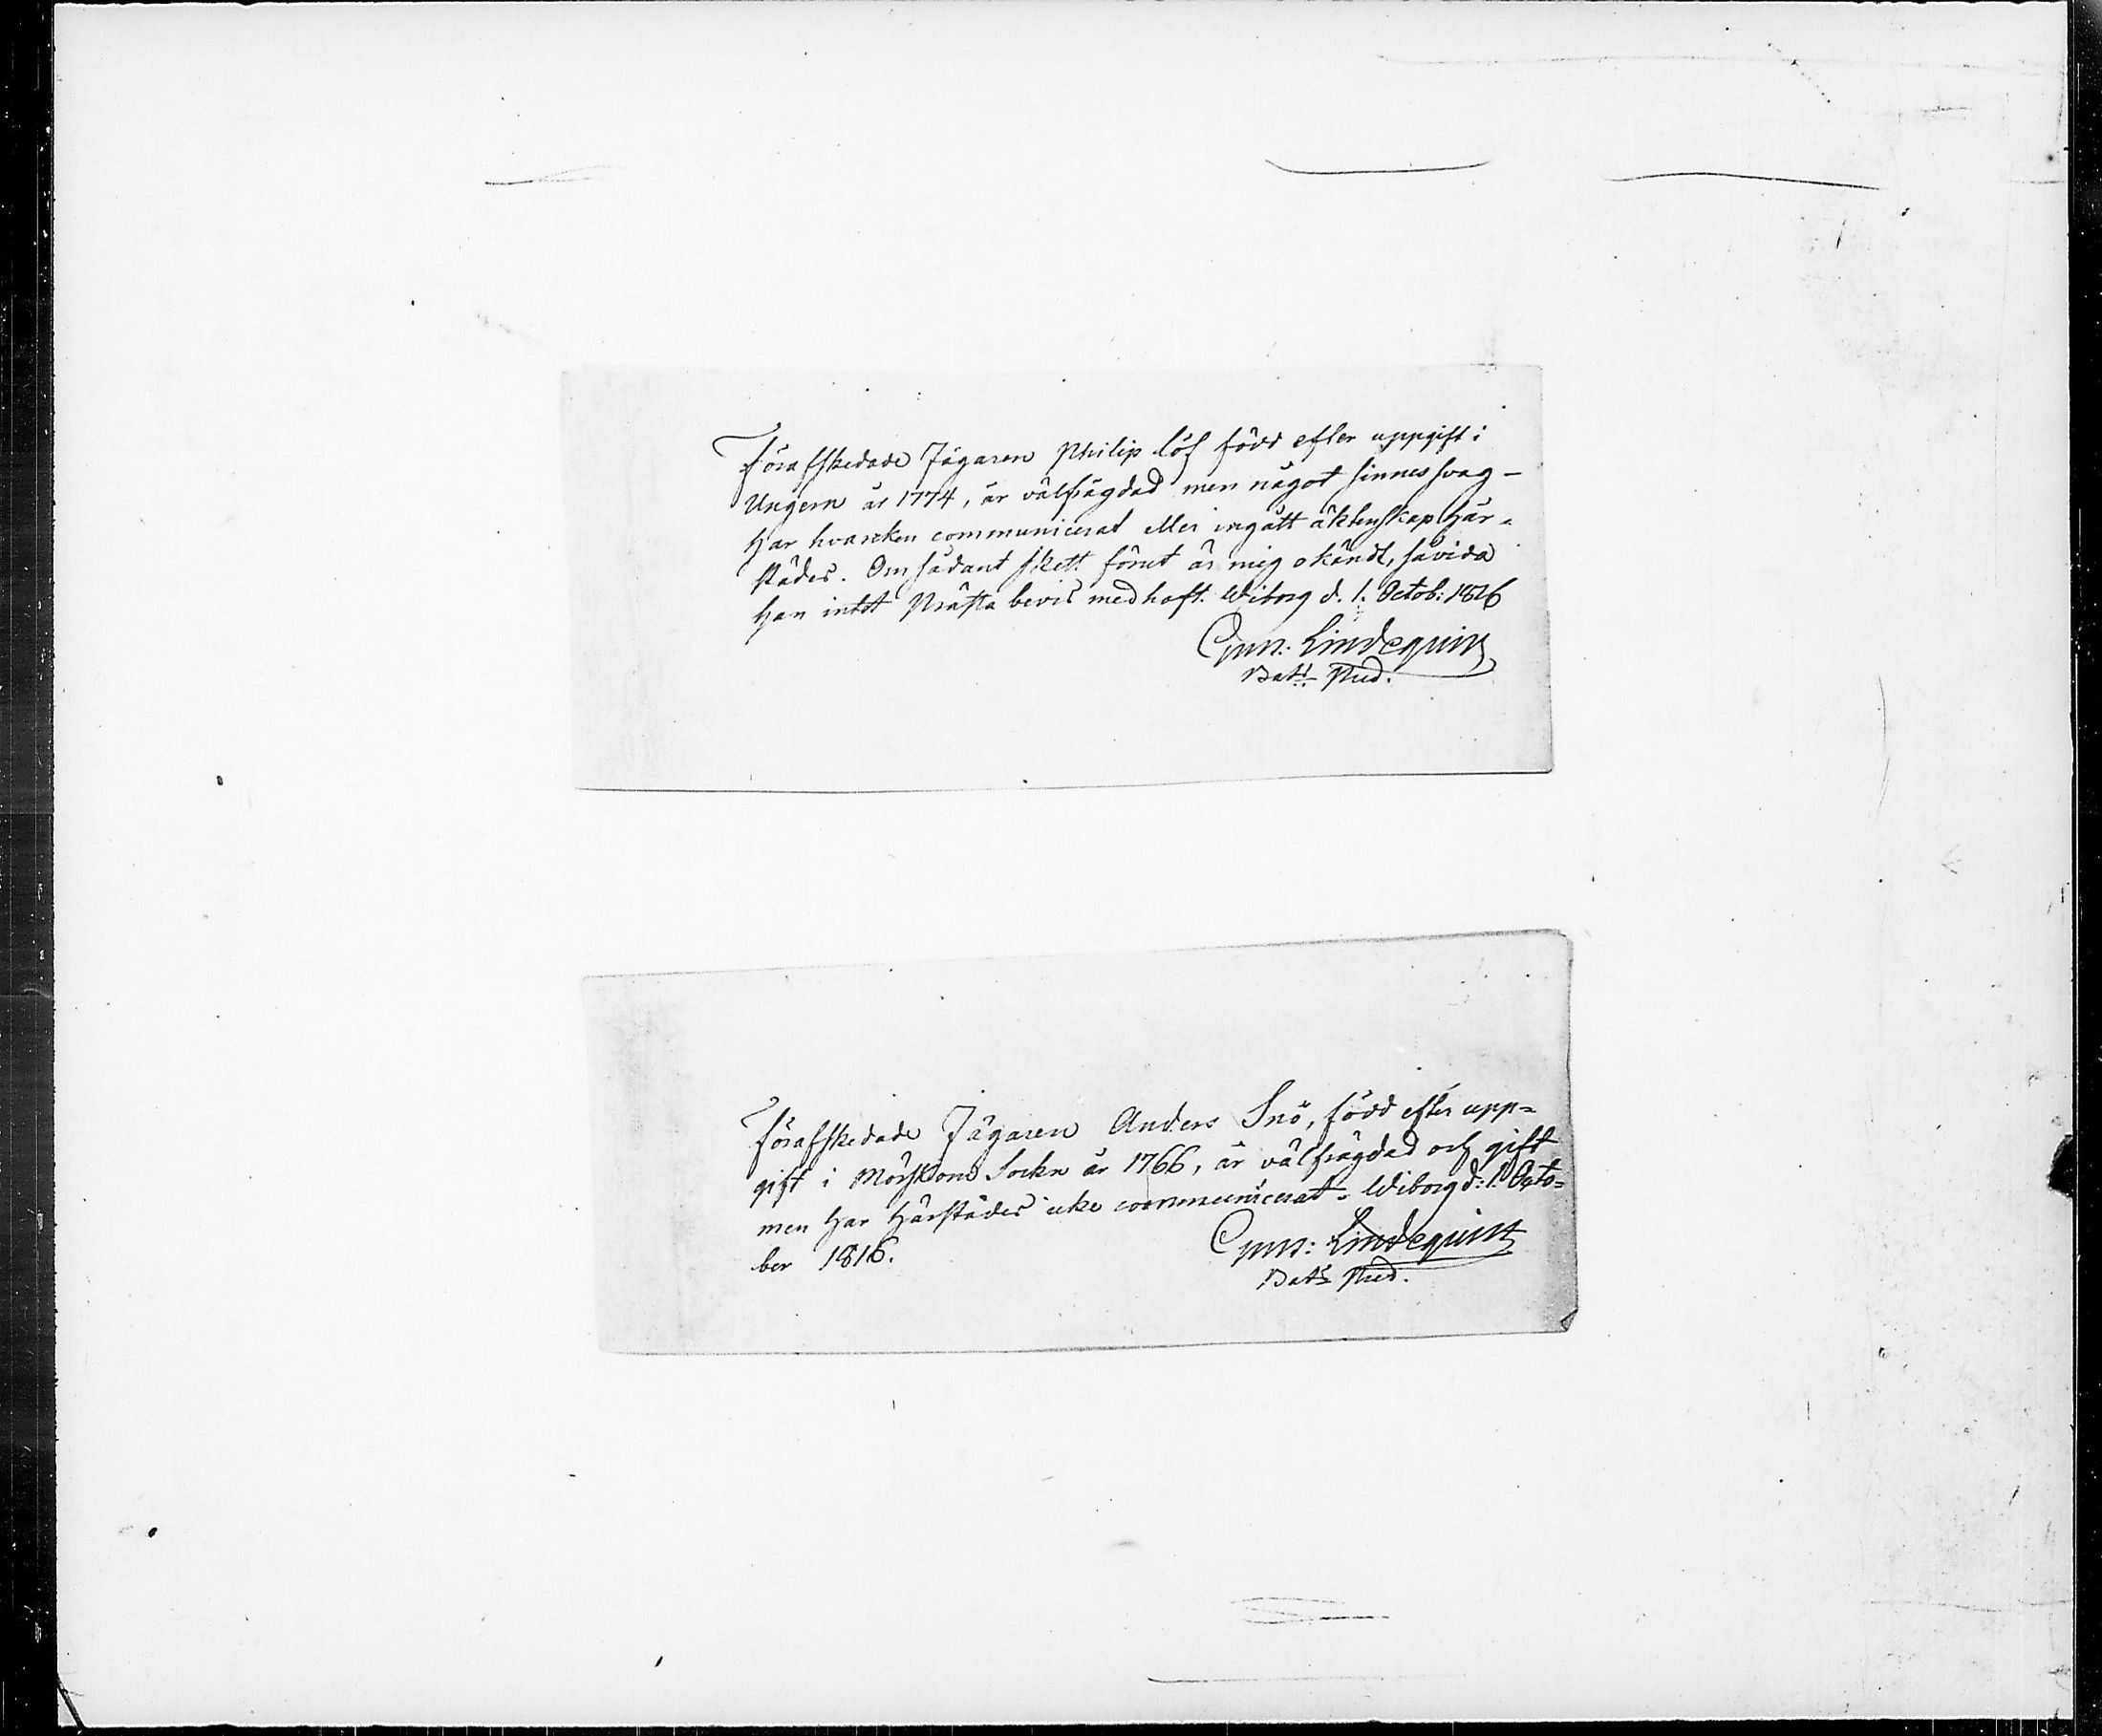 Förafskedade Jägaren Philip Löf född efter uppgift i
Ungern år 1774, är välfrägdad men något sinnessvag –
Har hvarcken communicerat eller ingått äktenskap här=
städes. Om sådant skett förut är mig okändt, såvida
han intet Prästa bevis medhaft. Wiborg d. 1. Octob: 1816
Gust. Lindequist
Bat: Pred.
Förafskedade Jägaren Anders Snö, född efter upp=
gift i Mörskom Sockn år 1766, är välfrägdad och gift
men har härstädes icke communicerat. Wiborg d: 1. Octo=
ber 1816.
Gust: Lindequist
Bat: Pred.